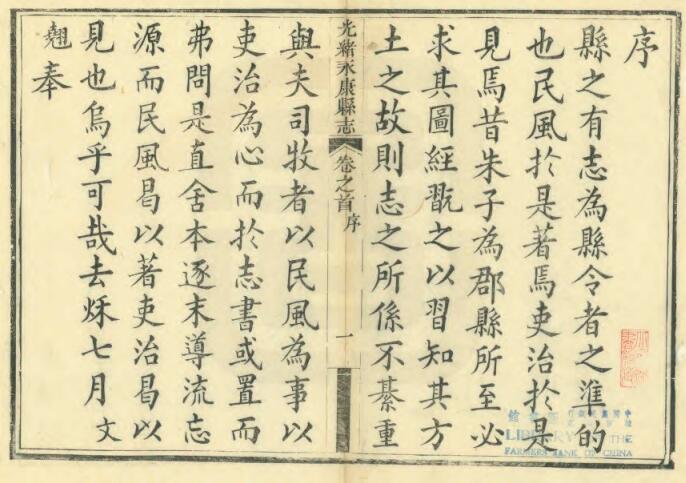 序
縣之有志為縣令者之準的
也民風於是著焉吏治於是
見焉昔朱子為郡縣所至必
求其圖經翫之以習知其方
土之故則志之所係不綦重
光緒永康縣志
卷之首 序
一
與夫司牧者以民風為事以
吏治為心而於志書或置而
弗問是直舍本逐末導流忘
源而民風曷以著吏治曷以
見也烏乎可哉去秌七月文
翹奉
LIBRARY OF THE
FARMERS BANK OF CHINA